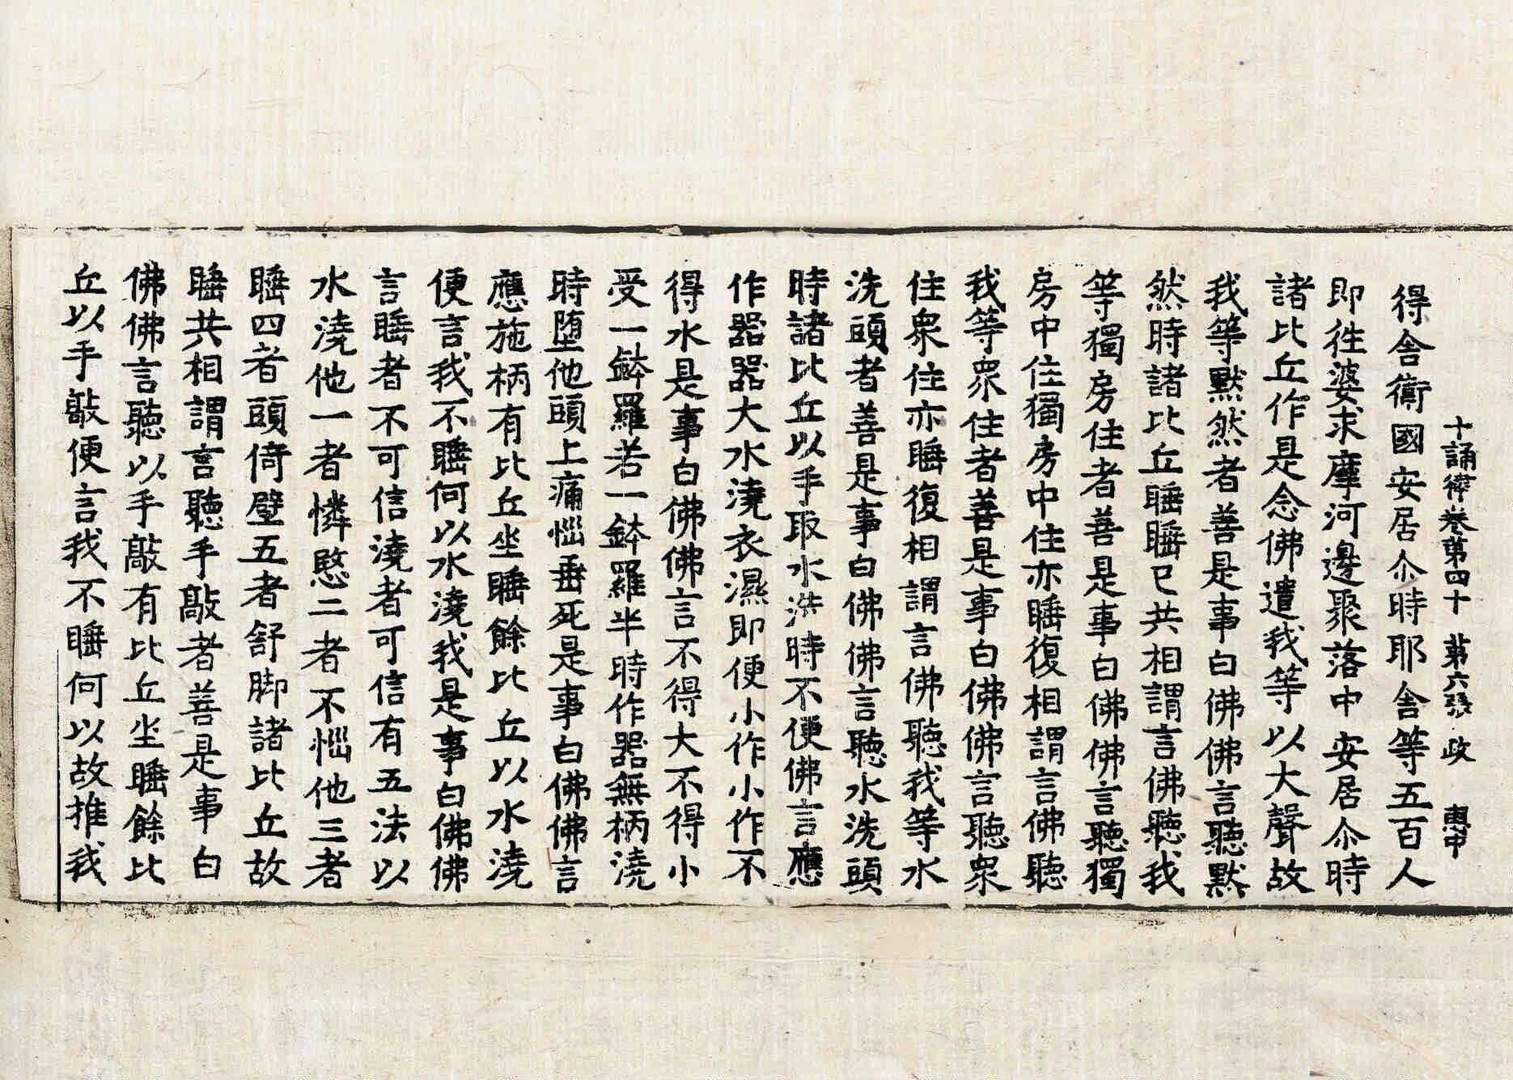 十誦律卷第四十 苐六張 攺 惠中
得舍衛國安居尒時耶舍等五百人
即徃婆求摩河邊聚落中安居尒時
諸比丘作是念佛遣我等以大聲故
我等默然者善是事白佛佛言聽默
然時諸比丘睡睡已共相謂言佛聽我
等獨房住者善是事白佛佛言聽獨
房中住獨房中住亦睡復相謂言佛聽
我等衆住者善是事白佛佛言聽衆
住衆住亦睡復相謂言佛聽我等水
洗頭者善是事白佛佛言聽水洗頭
時諸比丘以手取水洗時不便佛言應
作器器大水澆衣濕即便小作小作不
得水是事白佛佛言不得大不得小
受一鉢羅若一鉢羅半時作器無柄澆
時堕他頭上痛惱垂死是事白佛佛言
應施柄有比丘坐睡餘比丘以水澆
便言我不睡何以水澆我是事白佛佛
言睡者不可信澆者可信有五法以
水澆他一者憐愍二者不惱他三者
睡四者頭倚壁五者舒脚諸比丘故
睡共相謂言聽手敲者善是事白
佛佛言聽以手敲有比丘坐睡餘比
丘以手敲便言我不睡何以故推我